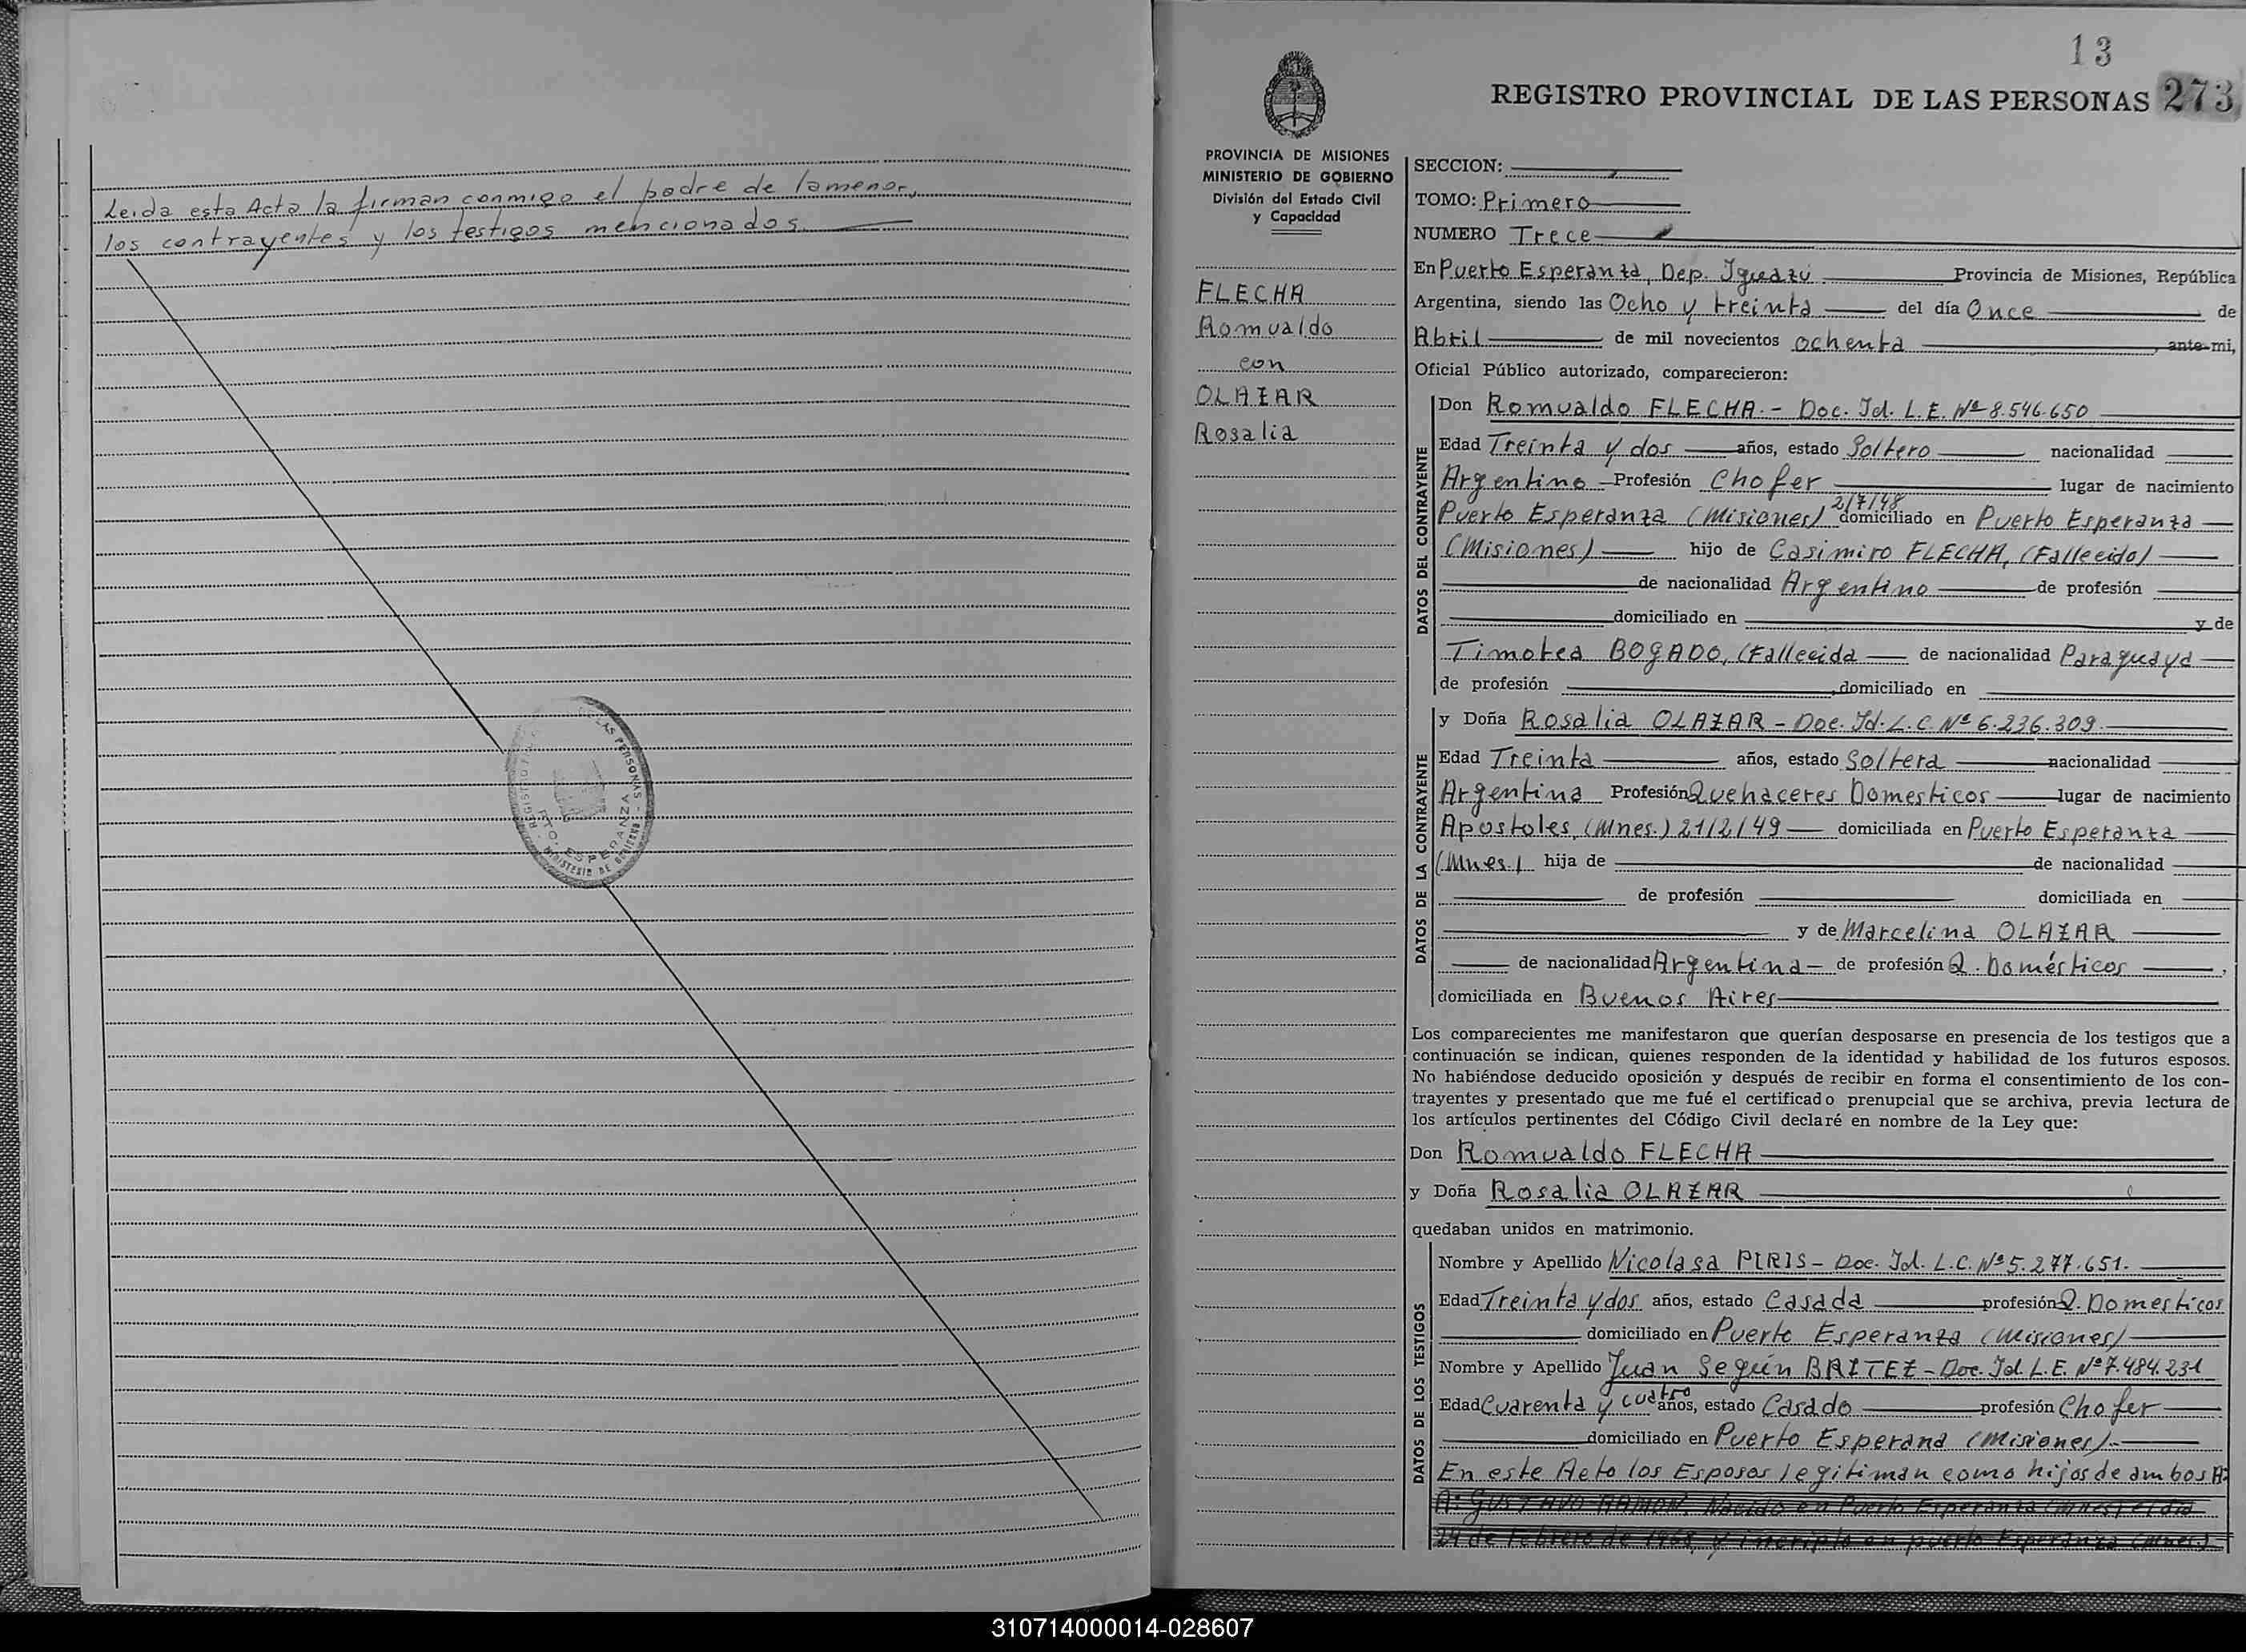 Leida esta Acta la firman conmigo el padre de la menor,
los contrayentes y los testigos mencionados
LAS PERSONAS
PTO. ESPERANZA
MINISTERIO DE GOBIERNO
13
REGISTRO PROVINCIAL DE LAS PERSONAS 273
PROVINCIA DE MISIONES
MINISTERIO DE GOBIERNO
División del Estado Civil
y Capacidad
FLECHA
Romualdo
con
OLAZAR
Rosalia
SECCION:
TOMO: Primero
NUMERO Trece
En Puerto Esperanza, Dep. Iguazú Provincia de Misiones, República
Argentina, siendo las Ocho y treinta del día Once de
Abril de mil novecientos ochenta, ante mi,
Oficial Público autorizado, comparecieron:
DATOS DEL CONTRAYENTE
Don Romualdo FLECHA.- Doc. Id. L.E. Nº 8.546.650
Edad Treinta y dos años, estado Soltero nacionalidad
Argentino Profesión Chofer lugar de nacimiento
Puerto Esperanza (Misiones) 2/7/48 domiciliado en Puerto Esperanza
(Misiones) hijo de Casimiro FLECHA, (Fallecido)
de nacionalidad Argentino de profesión
domiciliado en y de
Timotea BOGADO, (Fallecida de nacionalidad Paraguaya
de profesión , domiciliado en
DATOS DE LA CONTRAYENTE
y Doña Rosalia OLAZAR - Doc. Id. L.C. Nº 6.236.309.
Edad Treinta años, estado Soltera nacionalidad
Argentina Profesión Quehaceres Domesticos lugar de nacimiento
Apostoles, (Mnes.) 21/2/49 domiciliada en Puerto Esperanza
(Mnes.) hija de de nacionalidad
de profesión domiciliada en
y de Marcelina OLAZAR
de nacionalidad Argentina de profesión Q. Domésticos ,
domiciliada en Buenos Aires
Los comparecientes me manifestaron que querían desposarse en presencia de los testigos que a
continuación se indican, quienes responden de la identidad y habilidad de los futuros esposos.
No habiéndose deducido oposición y después de recibir en forma el consentimiento de los con-
trayentes y presentado que me fué el certificado prenupcial que se archiva, previa lectura de
los artículos pertinentes del Código Civil declaré en nombre de la Ley que:
Don Romualdo FLECHA
y Doña Rosalia OLAZAR
quedaban unidos en matrimonio.
DATOS DE LOS TESTIGOS
Nombre y Apellido Nicolasa PIRIS - Doc. Id. L.C. Nº 5.277.651.
Edad Treinta y dos años, estado Casada profesión Q. Domesticos
domiciliado en Puerto Esperanza (Misiones)
Nombre y Apellido Juan Según BRITEZ - Doc. Id. L.E. Nº 7.484.231
Edad Cuarenta y cuatro años, estado Casado profesión Chofer
domiciliado en Puerto Esperana (Misiones).-
En este Acto los Esposos legitiman como hijos de ambos A:
A: GUSTAVO RAMON, Nacido en Puerto Esperanza (Mnes) el dia
24 de Febrero de 1968, y incripto en puerto Esperanza (Mnes.)
310714000014-028607